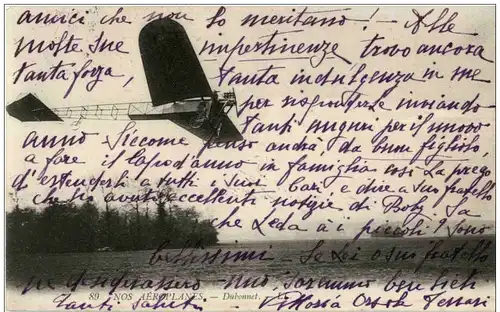 amici che non lo meritano! - Alle
molte Sue impertinenze trovo ancora
tanta forza, tanta indulgenza in me
per risponderLe inviando
tanti auguri per il nuovo
anno Siccome penso andrà da buon figliolo,
a fare il Capo d'anno in famiglia così La prego
d'estenderli a tutti i Suoi Cari e dire a Suo fratello
che ho avuto eccellenti notizie di Boby. Sa
che Leda à i piccoli? Sono
bellissimi - Se Lei o Suo fratello
ne desiderassero uno, saremmo ben lieti
89 NOS AÉROPLANES. - Dubonnet.
Tanti saluti Vittoria Ferrari